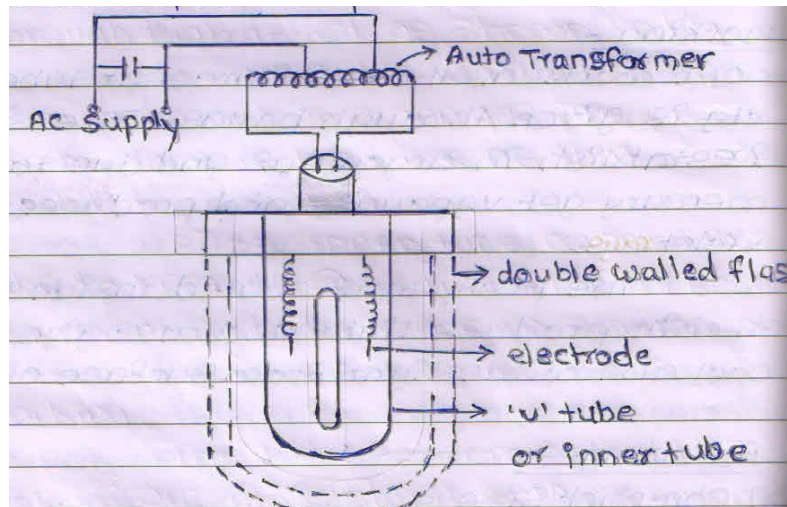 Auto Transformer
AC Supply
double walled flas
electrode
'u' tube
or inner tube